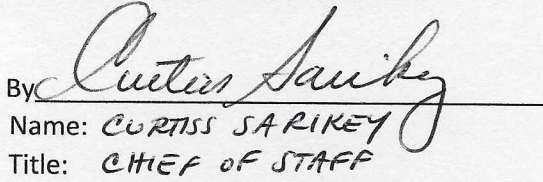 By Curtiss Sarikey
Name: CURTISS SARIKEY
Title: CHIEF OF STAFF